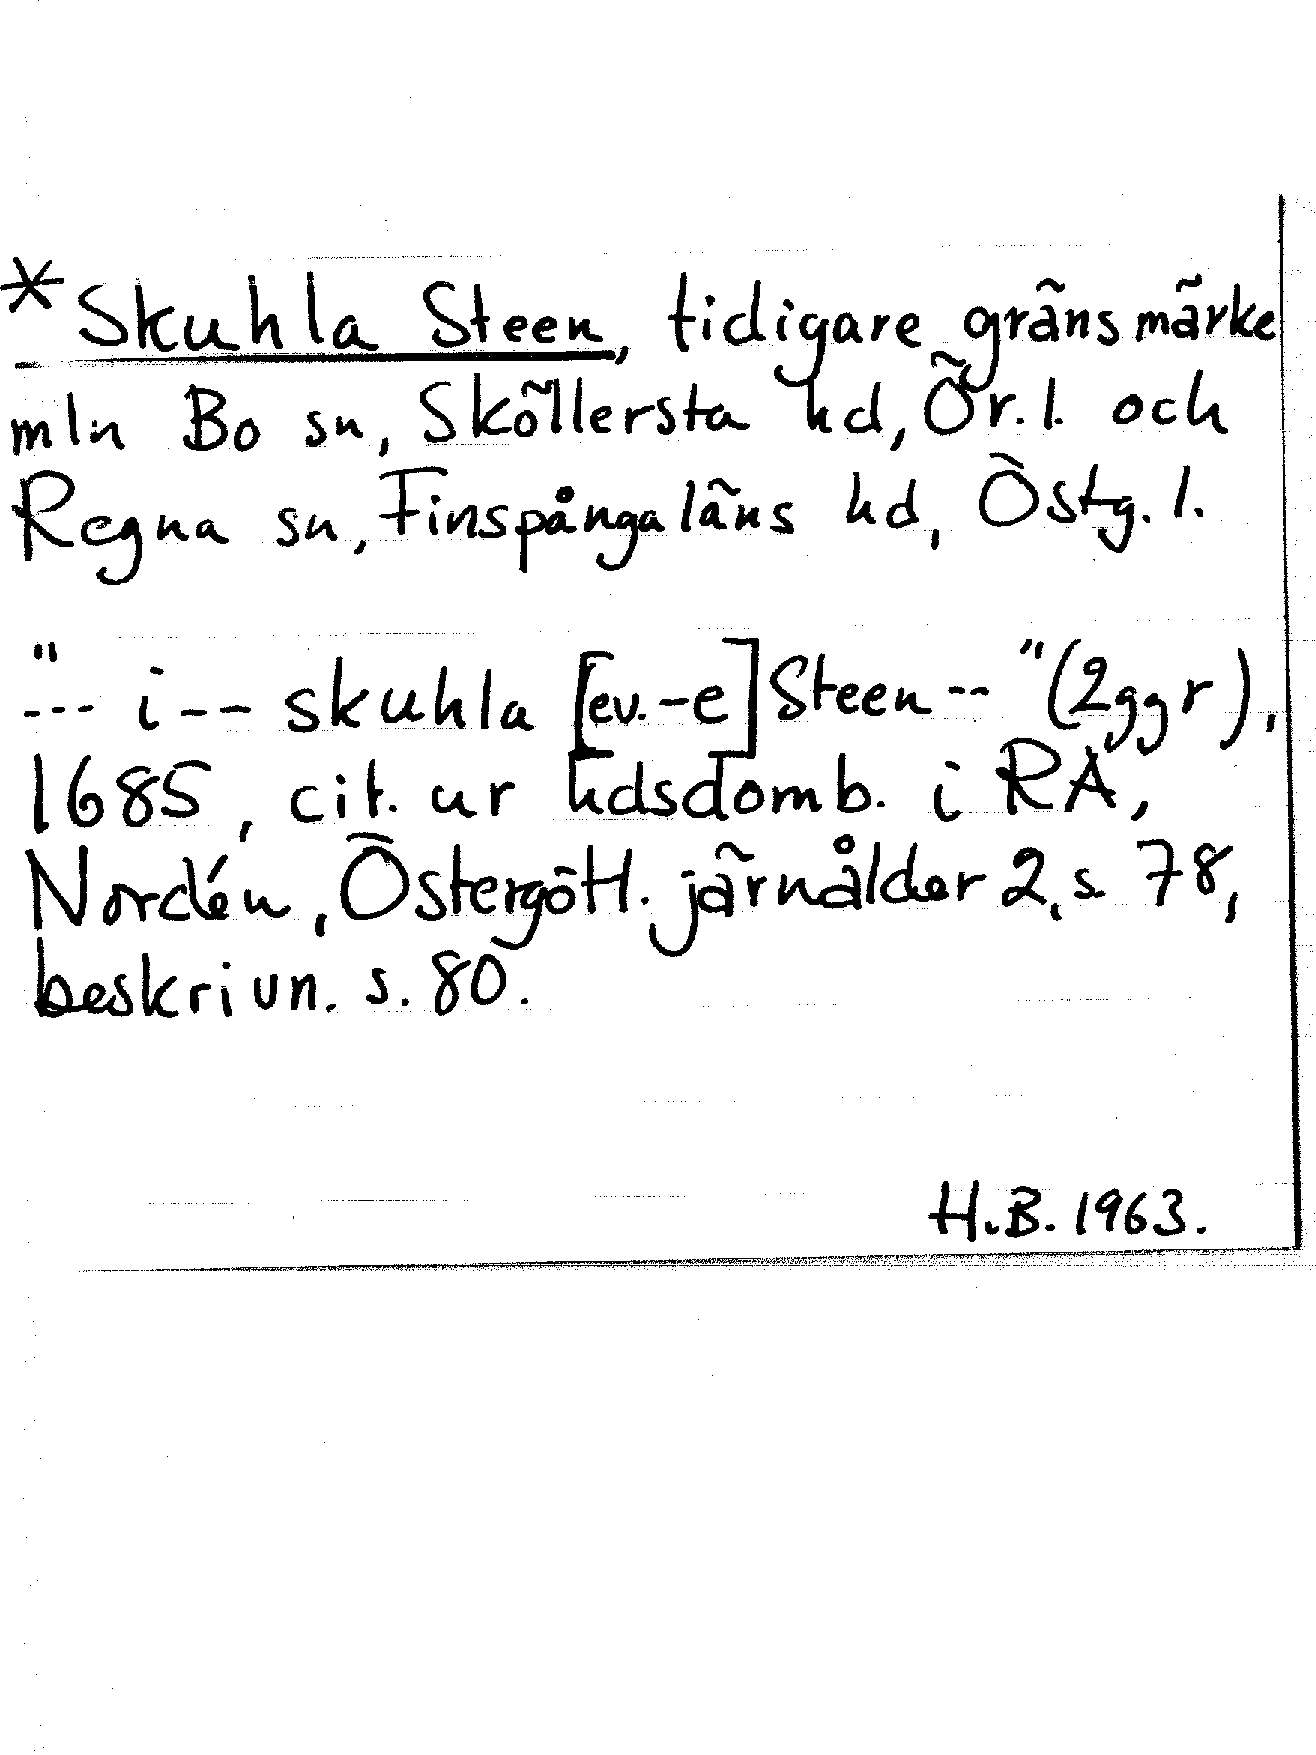 *Skuhla Steen, tidigare gränsmärke
mln Bo sn, Sköllersta hd, Ör. l. och
Regna sn, Finspångaläns hd, Östg. l.
"--- i -- skuhla [ev. -e] Steen -- " (2ggr),
1685, cit. ur hdsdomb. i RA,
Nordén, Östergötl. järnålder 2, s 78,
beskrivn. s. 80.
H.B. 1963.